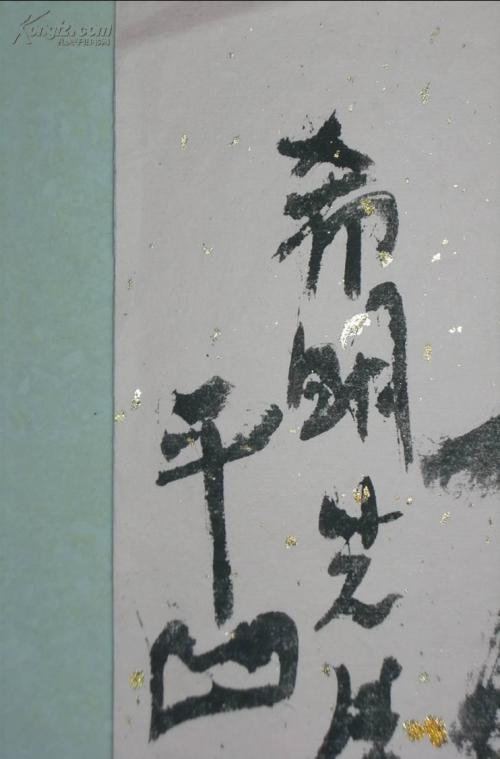 Kongfz.com
孔夫子旧书网
希明先
平凹